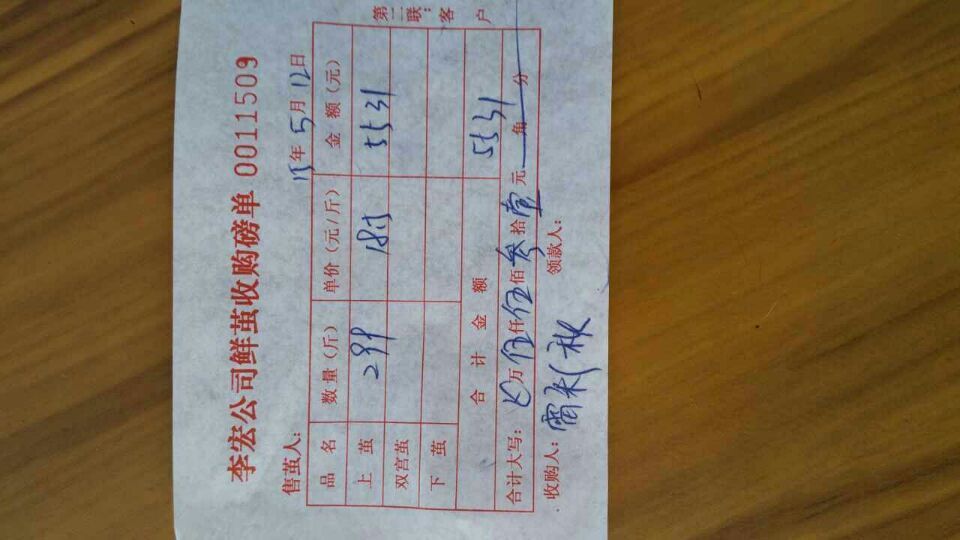 李宏公司鲜茧收购磅单 0011509
售茧人: 15年5月12日
品名 数量(斤) 单价(元/斤) 金额(元)
上茧 299 185 5531
双宫茧
下茧
合计金额 5531
合计大写: 万伍仟伍佰叁拾壹元 角 分
收购人: 领款人:
第二联:客户